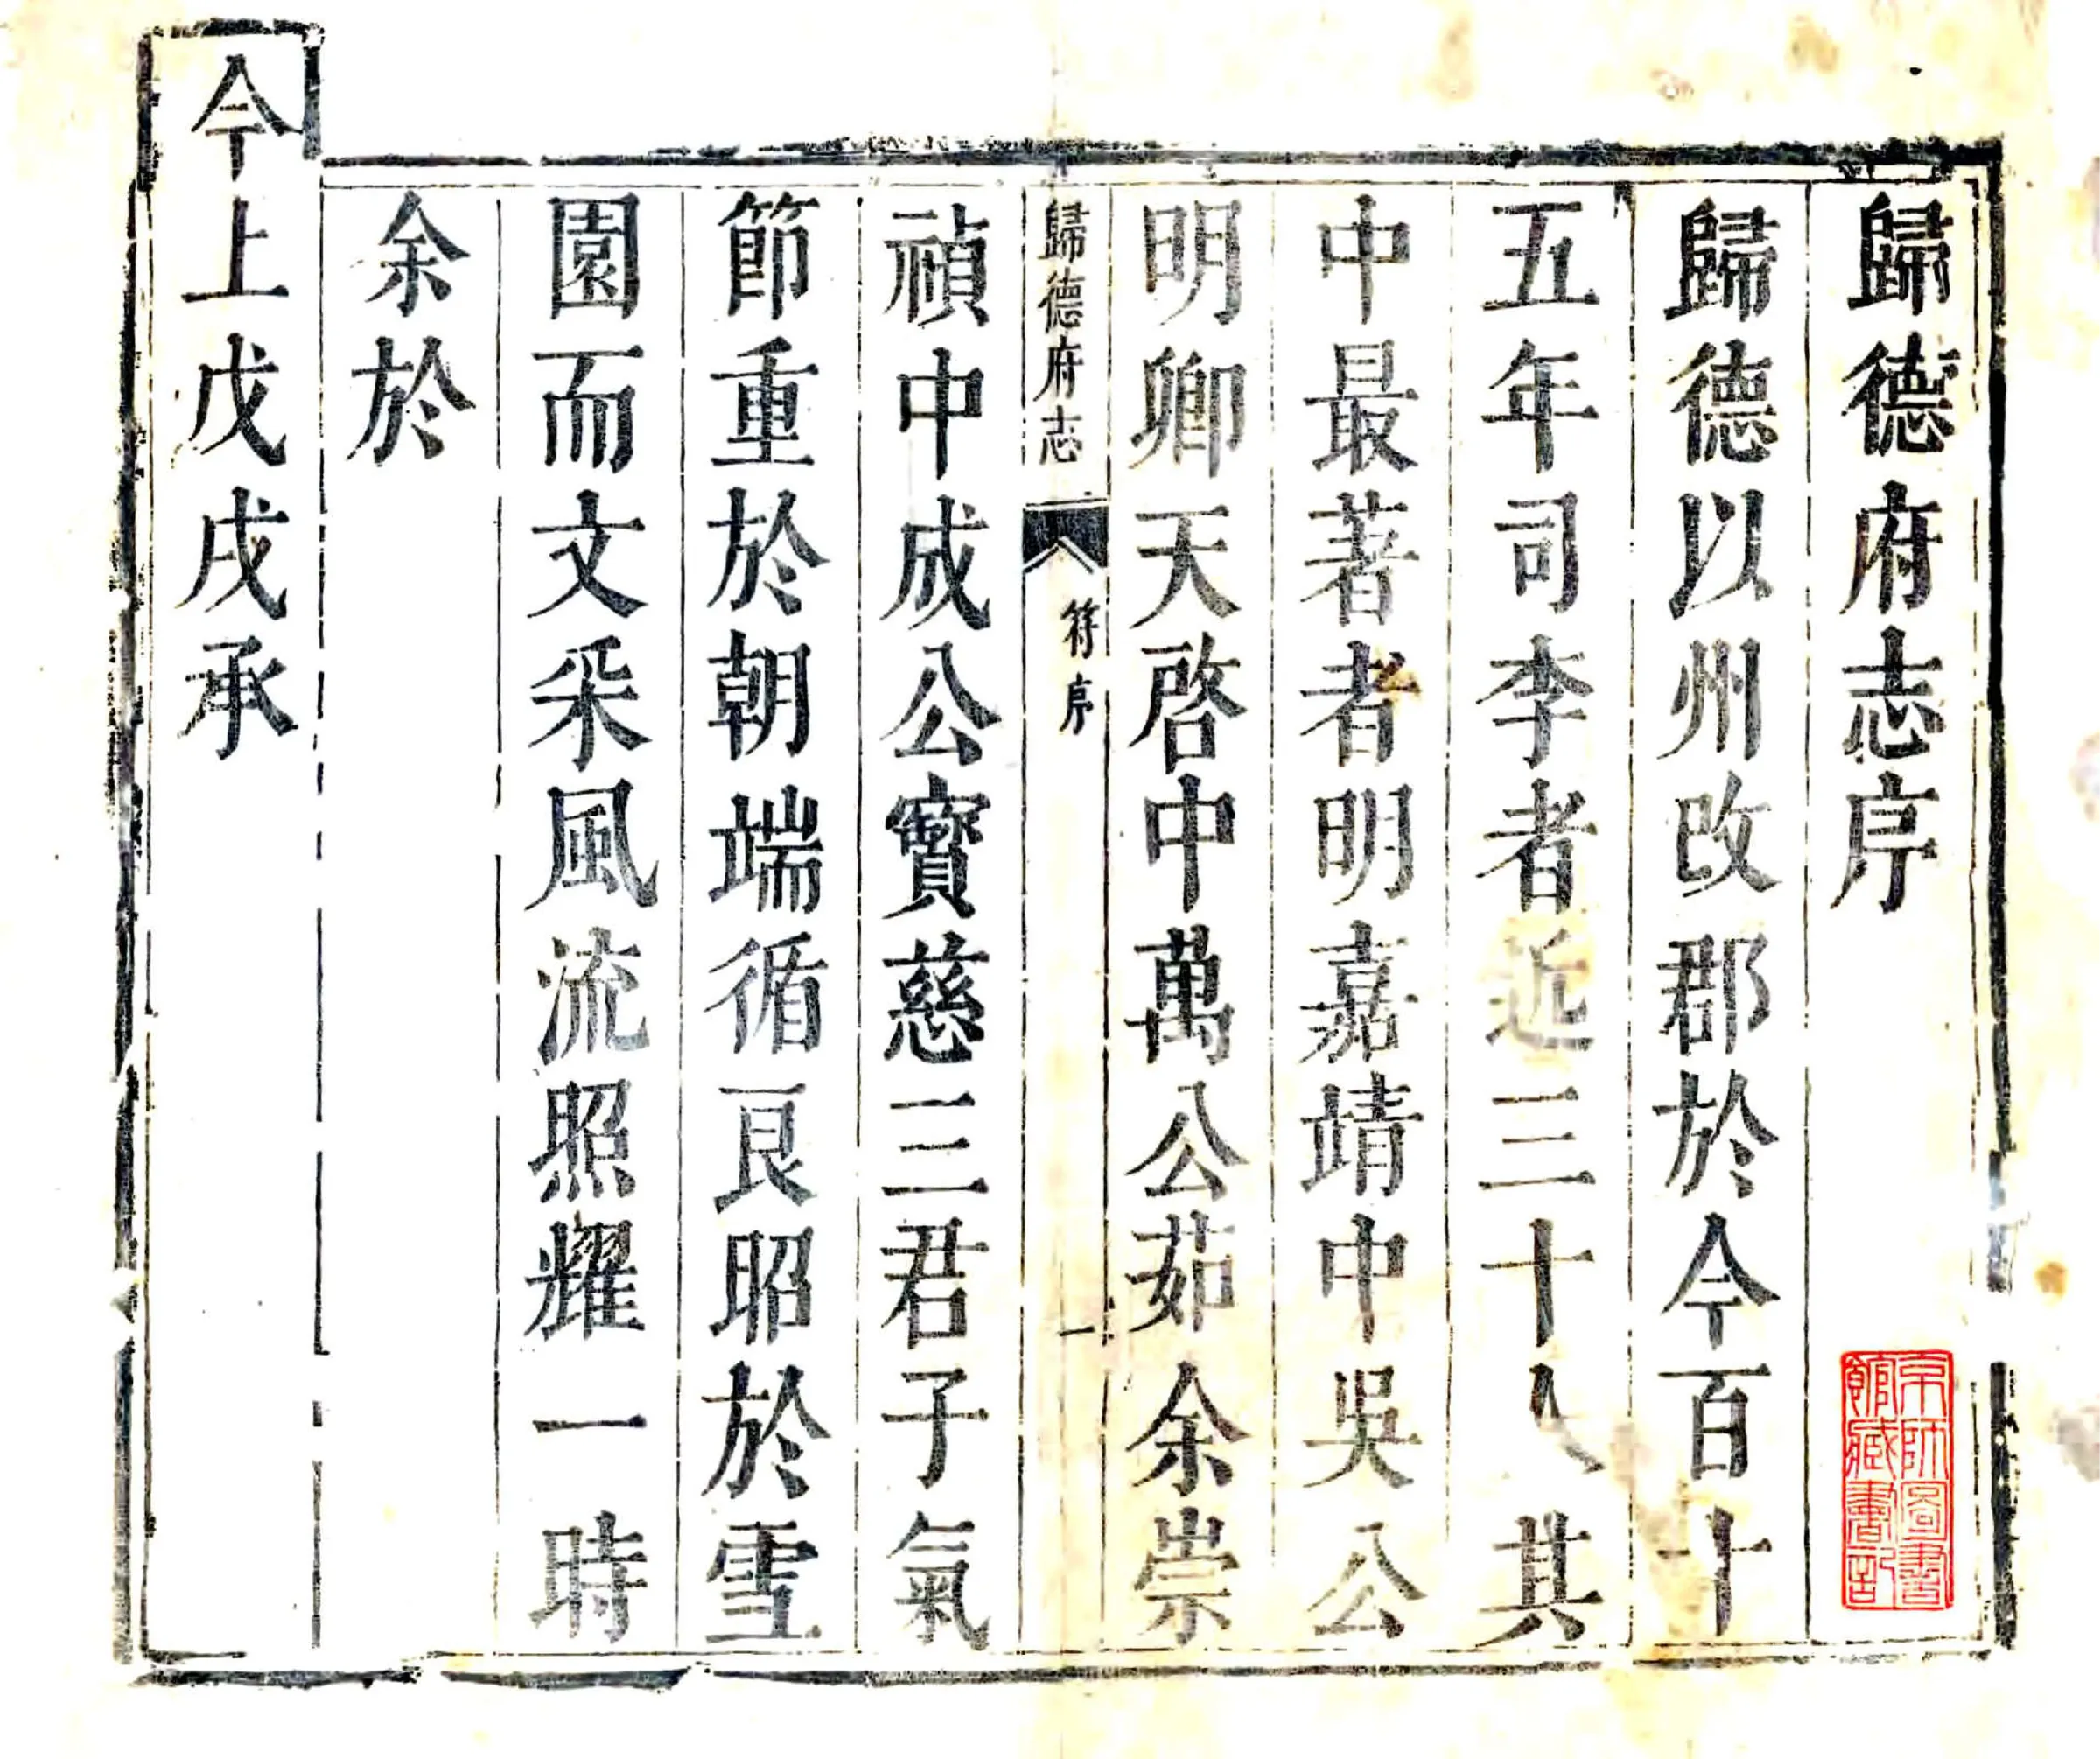 歸德府志序
歸德以州改郡於今百十
五年司李者近三十人其
中最著者明嘉靖中吳公
明卿天啓中萬公茹余崇
歸德府志 符序 一
禎中成公寶慈三君子氣
節重於朝端循良昭於雪
園而文采風流照耀一時
余於
今上戊戌承
京師圖書
館藏書記